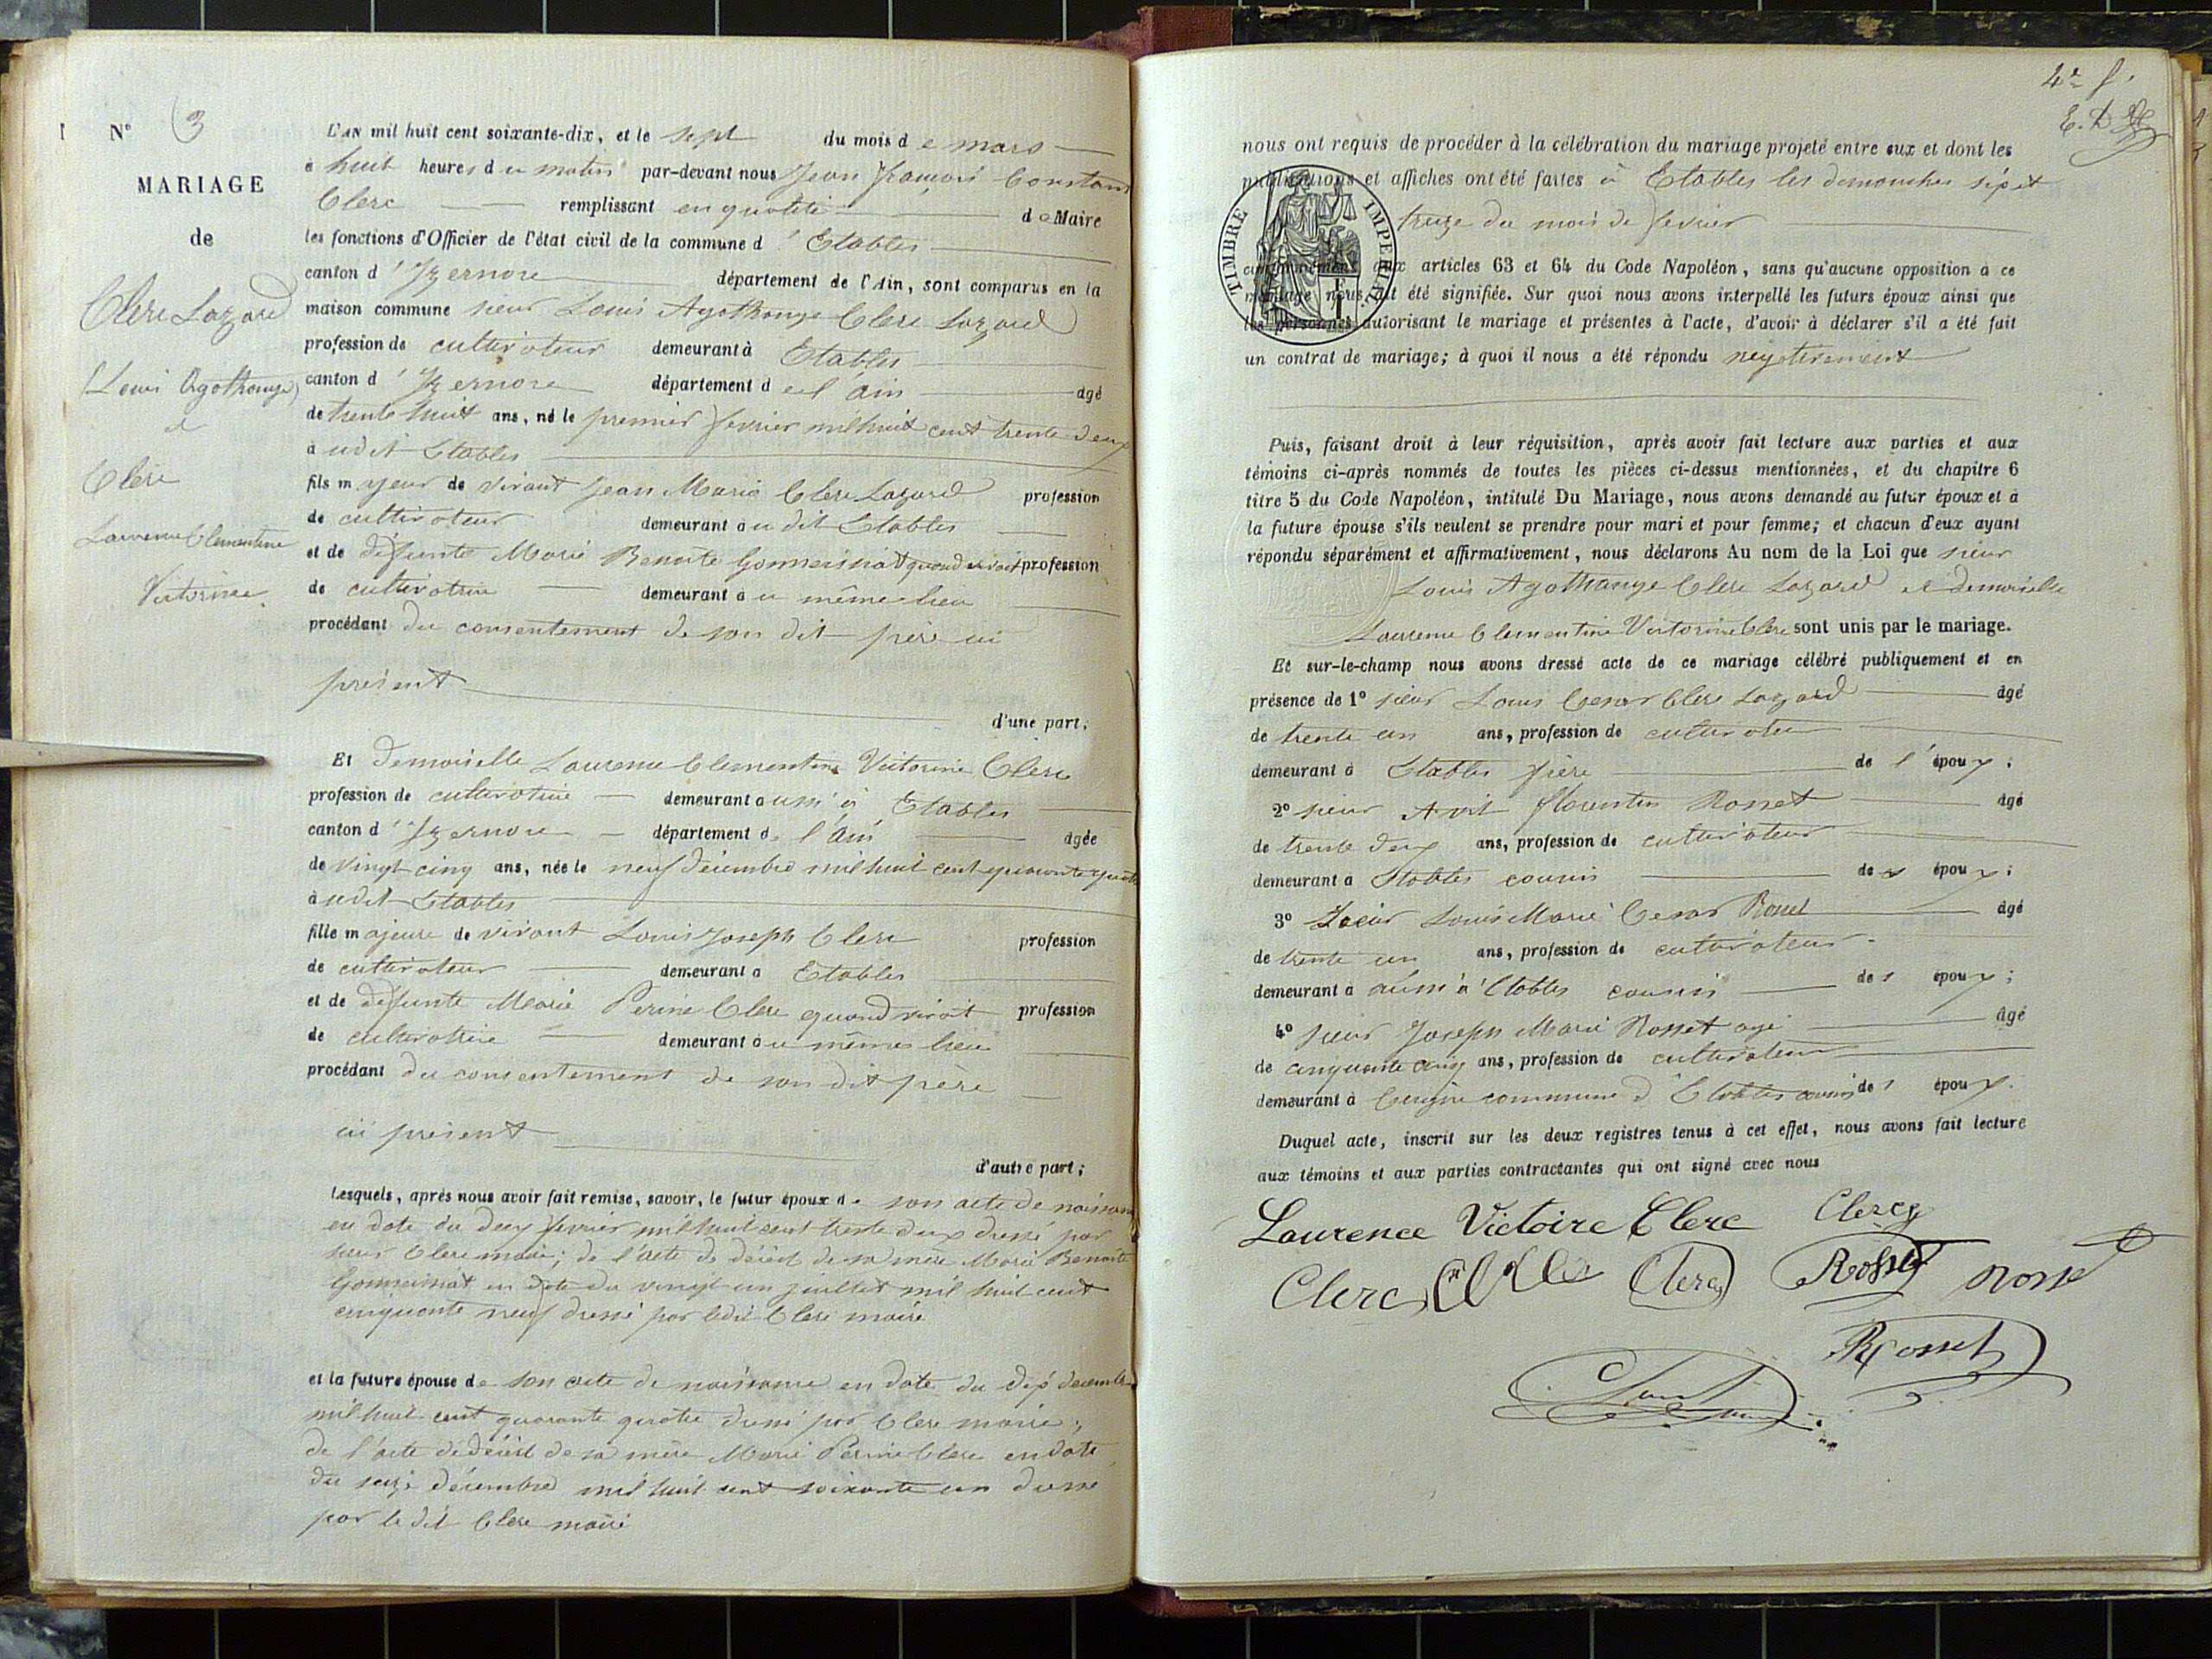 N° 3
MARIAGE
de
Clerc Lazard
Louis Agathange
et
Clerc
Laurence Clementine
Victorine
L'AN mil huit cent soixante-dix, et le sept du mois de mars
à huit heures du matin par-devant nous Jean François Constant
Clerc remplissant en qualité de Maire
les fonctions d'Officier de l'état civil de la commune d'Etables
canton d'Izernore département de l'Ain, sont comparus en la
maison commune sieur Louis Agathange Clerc Lazard
profession de cultivateur demeurant à Etables
canton d'Izernore département de l'ain âgé
de trente huit ans, né le premier fevrier mil huit cent trente deux
audit Etables
fils majeur de vivant Jean Marie Clerc Lazard profession
de cultivateur demeurant audit Etables
et de défunte Marie Benoite Gonneinat quand vivait profession
de cultivatrice demeurant au même lieu
procédant du consentement de son dit père ici
présent
d'une part;
Et demoiselle Laurence Clementine Victorine Clerc
profession de cultivatrice demeurant aussi à Etables
canton d'Izernore département de l'Ain âgée
de vingt cinq ans, née le neuf décembre mil huit cent quarante quatre
audit Etables
fille majeure de vivant Louis Joseph Clerc profession
de cultivateur demeurant à Etables
et de défunte Marie Perrine Clerc quand vivait profession
de cultivatrice demeurant au même lieu
procédant du consentement de son dit père
ici présent
d'autre part;
Lesquels, après nous avoir fait remise, savoir, le futur époux de son acte de naissance
en date du deux fevrier mil huit cent trente deux dressé par
sieur Clerc maire; de l'acte de décès de sa mère Marie Benoite
Gonneinat en date du vingt un juillet mil huit cent
cinquante neuf dressé par ledit Clerc maire
et la future épouse de son acte de naissance en date du dix decembre
mil huit cent quarante quatre dressé par Clerc maire;
de l'acte de décès de sa mère Marie Perrine Clerc en date
du seize décembre mil huit cent soixante un dressé
par le dit Clerc maire
4e f.
nous ont requis de procéder à la célébration du mariage projeté entre eux et dont les
publications et affiches ont été faites à Etables les dimanches six et
treize du mois de fevrier
TIMBRE IMPÉRIAL
conformément aux articles 63 et 64 du Code Napoléon, sans qu'aucune opposition à ce
mariage nous ait été signifiée. Sur quoi nous avons interpellé les futurs époux ainsi que
les personnes autorisant le mariage et présentes à l'acte, d'avoir à déclarer s'il a été fait
un contrat de mariage; à quoi il nous a été répondu negativement
Puis, faisant droit à leur réquisition, après avoir fait lecture aux parties et aux
témoins ci-après nommés de toutes les pièces ci-dessus mentionnées, et du chapitre 6
titre 5 du Code Napoléon, intitulé Du Mariage, nous avons demandé au futur époux et à
la future épouse s'ils veulent se prendre pour mari et pour femme; et chacun d'eux ayant
répondu séparément et affirmativement, nous déclarons Au nom de la Loi que sieur
Louis Agathange Clerc Lazard et demoiselle
Laurence Clementine Victorine Clerc sont unis par le mariage.
Et sur-le-champ nous avons dressé acte de ce mariage célébré publiquement et en
présence de 1° sieur Louis Cesar Clerc Lazard âgé
de trente un ans, profession de cultivateur
demeurant à Etables frère de l'époux;
2° sieur Avit Florentin Rosset âgé
de trente deux ans, profession de cultivateur
demeurant à Etables cousin de l'époux;
3° sieur Louis Marie Cesar Rosset âgé
de trente un ans, profession de cultivateur
demeurant à aussi à Etables cousin de l'époux;
4° sieur Joseph Marie Rosset agé âgé
de cinquante cinq ans, profession de cultivateur
demeurant à commune d'Etables cousin de l'époux.
Duquel acte, inscrit sur les deux registres tenus à cet effet, nous avons fait lecture
aux témoins et aux parties contractantes qui ont signé avec nous
Laurence Victoire Clerc Clerc
Clerc Clerc Rosset Rosset
Rosset